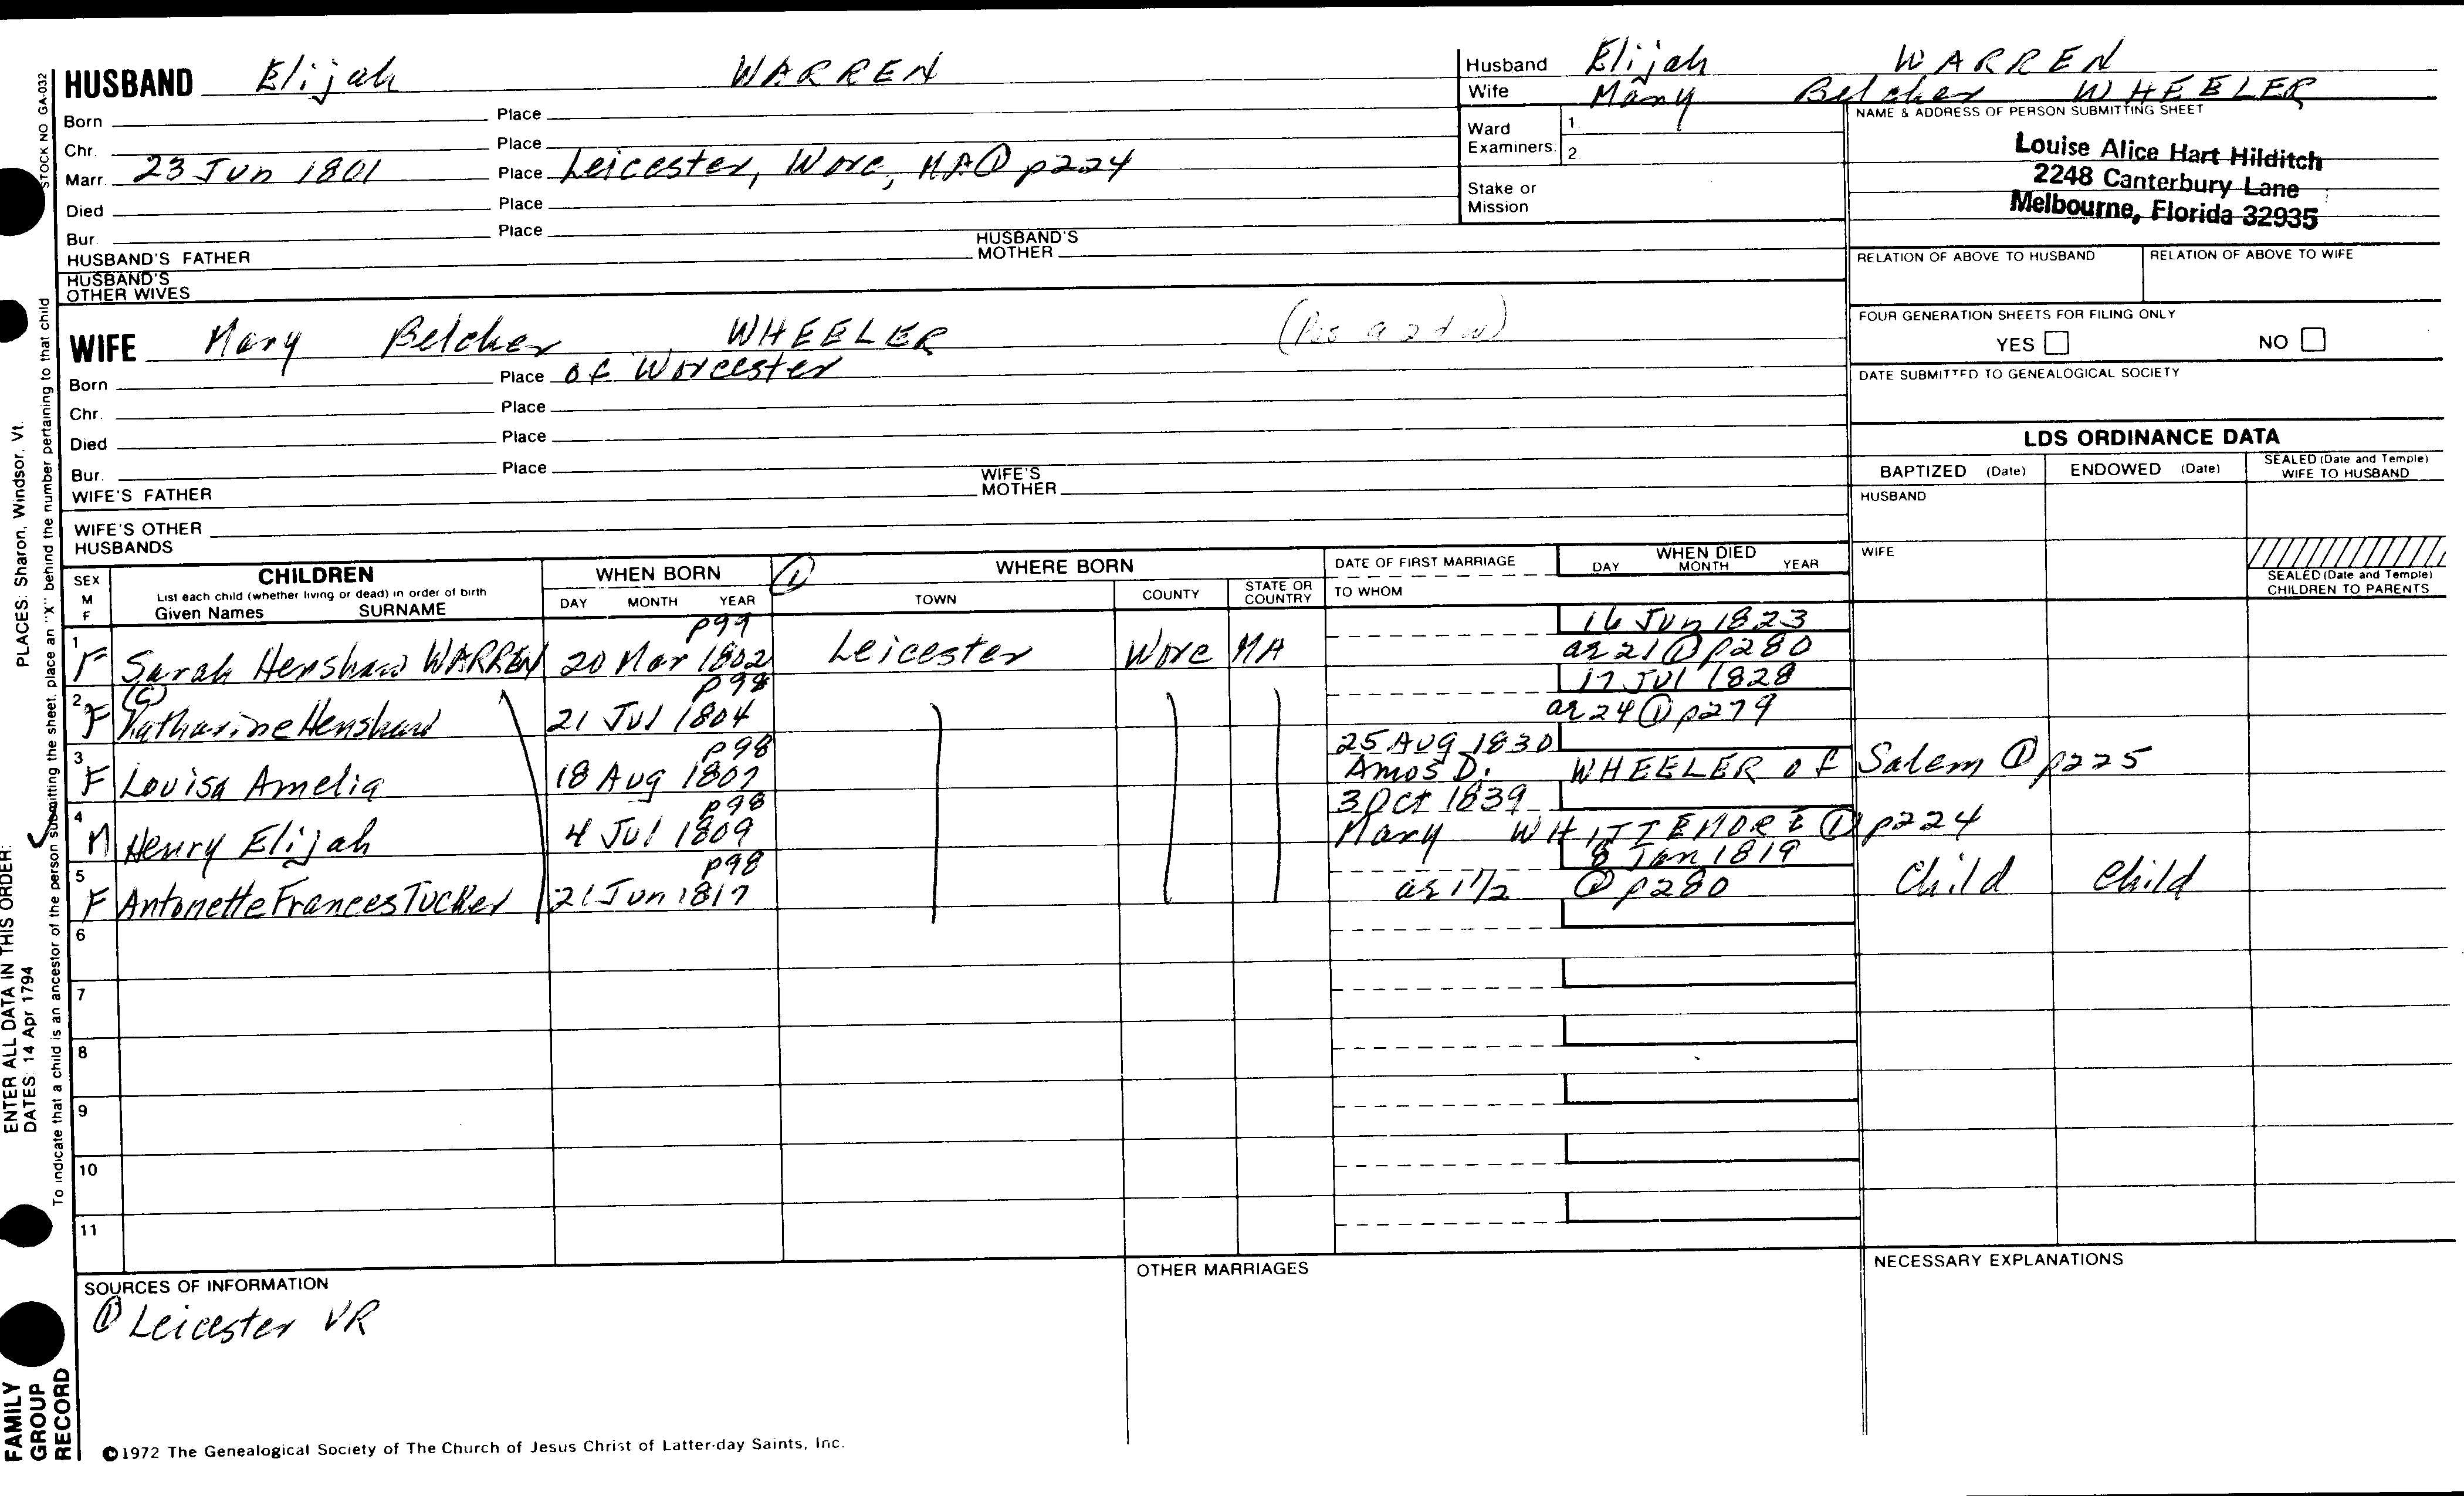 STOCK NO GA-032
HUSBAND Elijah WARREN
Born Place
Chr. Place
Marr. 23 Jun 1801 Place Leicester, Worc, MA ① p224
Died Place
Bur. Place
HUSBAND'S FATHER HUSBAND'S MOTHER
HUSBAND'S OTHER WIVES
Husband Elijah WARREN
Wife Mary Belcher WHEELER
Ward Examiners 1. 2.
Stake or Mission
NAME & ADDRESS OF PERSON SUBMITTING SHEET
Louise Alice Hart Hilditch
2248 Canterbury Lane
Melbourne, Florida 32935
RELATION OF ABOVE TO HUSBAND RELATION OF ABOVE TO WIFE
FOUR GENERATION SHEETS FOR FILING ONLY
YES NO
DATE SUBMITTED TO GENEALOGICAL SOCIETY
WIFE Mary Belcher WHEELER
Born Place of Worcester
Chr. Place
Died Place
Bur. Place
WIFE'S FATHER WIFE'S MOTHER
WIFE'S OTHER HUSBANDS
LDS ORDINANCE DATA
BAPTIZED (Date) ENDOWED (Date) SEALED (Date and Temple) WIFE TO HUSBAND
HUSBAND
WIFE
SEALED (Date and Temple) CHILDREN TO PARENTS
SEX M F
CHILDREN
List each child (whether living or dead) in order of birth
Given Names SURNAME
WHEN BORN
DAY MONTH YEAR
① WHERE BORN
TOWN COUNTY STATE OR COUNTRY
DATE OF FIRST MARRIAGE
TO WHOM
WHEN DIED
DAY MONTH YEAR
p99 16 Jun 1823
1 F Sarah Henshaw WARREN 20 Mar 1802 Leicester Worc MA ae 21 ① p280
(C) p98 17 Jul 1828
2 F Katharine Henshaw 21 Jul 1804 ae 24 ① p279
p98 25 Aug 1830
3 F Louisa Amelia 18 Aug 1807 Amos D. WHEELER of Salem ① p225
p98 3 Oct 1839
4 M Henry Elijah 4 Jul 1809 Mary WHITTEMORE ① p224
p98 8 Jan 1819
5 F Antonette Frances Tucker 21 Jun 1817 ae 1½ ① p280 Child Child
6
7
8
9
10
11
SOURCES OF INFORMATION
① Leicester VR
OTHER MARRIAGES
NECESSARY EXPLANATIONS
©1972 The Genealogical Society of The Church of Jesus Christ of Latter-day Saints, Inc.
FAMILY GROUP RECORD
ENTER ALL DATA IN THIS ORDER:
DATES: 14 Apr 1794
PLACES: Sharon, Windsor, Vt.
To indicate that a child is an ancestor of the person submitting the sheet, place an "X" behind the number pertaining to that child